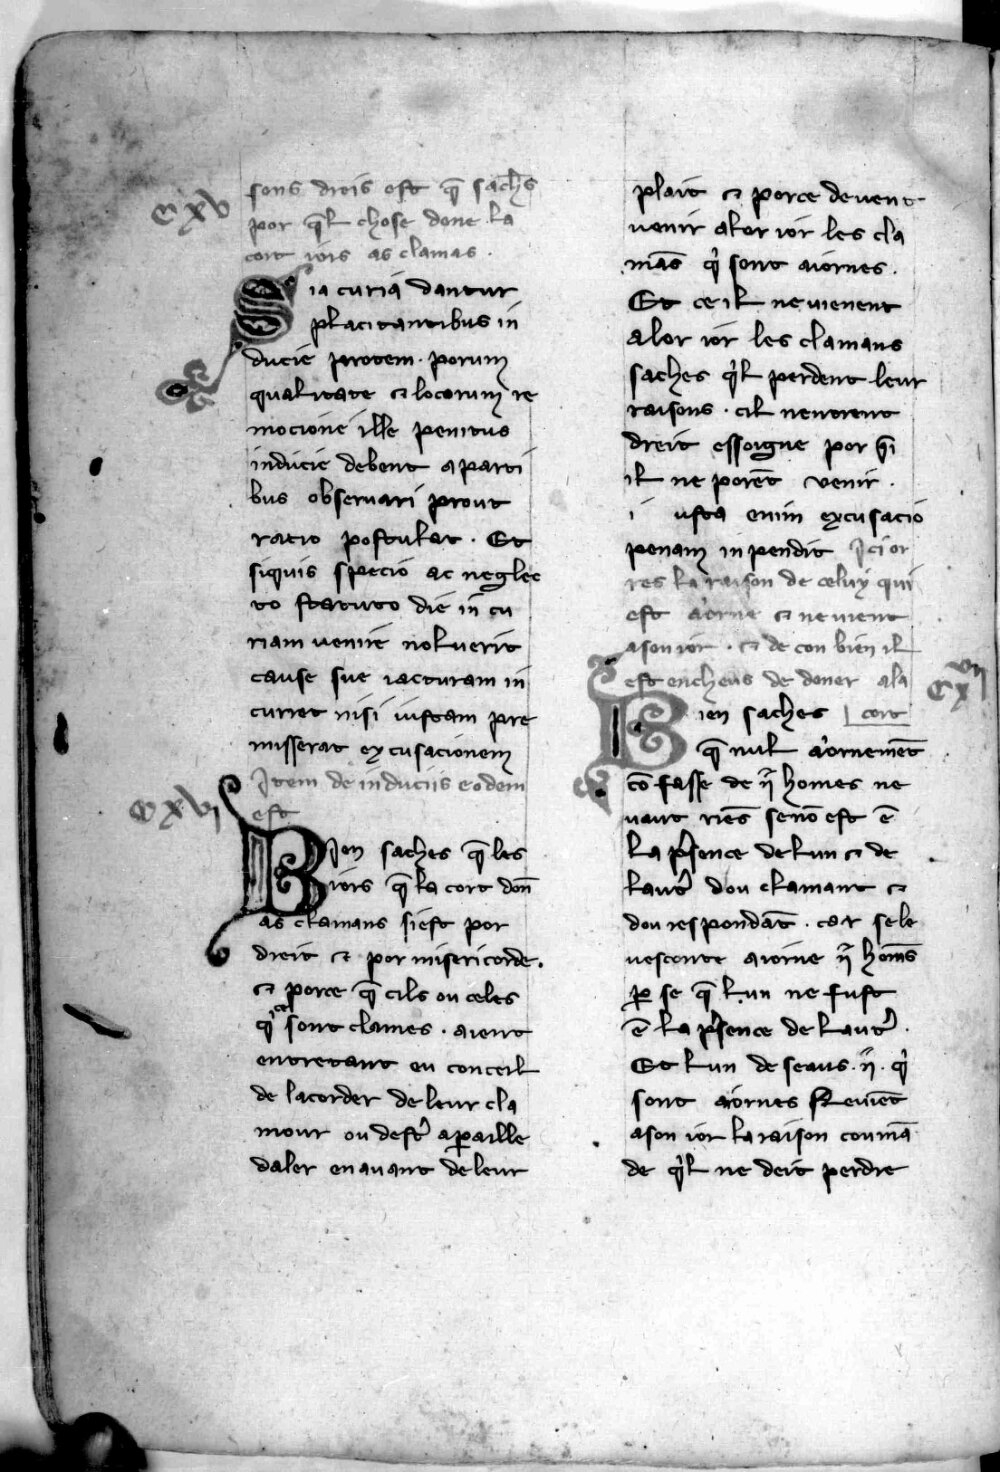 cxv
sons drois est q̄ sach̄s
por q̄l chose done la
cort iors as clamas .
Sia curia dantur
placitantibus in
ducie protem . porum
qualitate ⁊ locorum re
mocione ille penitus
inducie debent a parti
bus obseruari prout
ratio postulat . Et
siquis specio ac neglec
to statuto die in cu
riam uenire noluerit
cause sue iacturam in
curret nisi iustam pre
misserat excusacionem
Item de induciis eodem
est
cxvi
Bien saches q̄ les
iors q̄ la cort don̄
as clamans si est por
dreit ⁊ por misericorde .
⁊ porce q̄ cils ou celes
q̇ sont clames . aient
entretant eu conceil
de lacorder de leur cla
mour ou destr̓ aparaille
daler en auant de leur
plait ⁊ porce deuent
venir alor ior les cla
mās q̇ sont aiornes .
Et ce il ne uienent
alor ior les clamans
saches q̇l perdent leur
raisons . cil nentrent
dreit essoigne por q̄i
il ne porēt venir .
i usta enim excusacio
penam inpendit Ici or
res la raison de celuy qui
est aiorne ⁊ ne uient
a son ior . ⁊ de con bien il
est encheus de doner a la
cort
cxvii
Bien saches
q̄ nul aiornemēt
cō fasse de .ij. homes ne
uaut riēs senō est ē
la p̓sence de lun ⁊ de
lautr̓ dou clamant ⁊
dou respondāt . car se le
uesconte aiorne .ij. hom̄s
ꝑ se q̄ lun ne fust
ē la p̓sence de lautr̓ .
Et lun de seaus .ij. q̇
sont aiornes uiēt
a son ior la raison coumā
de q̇l ne deit perdre